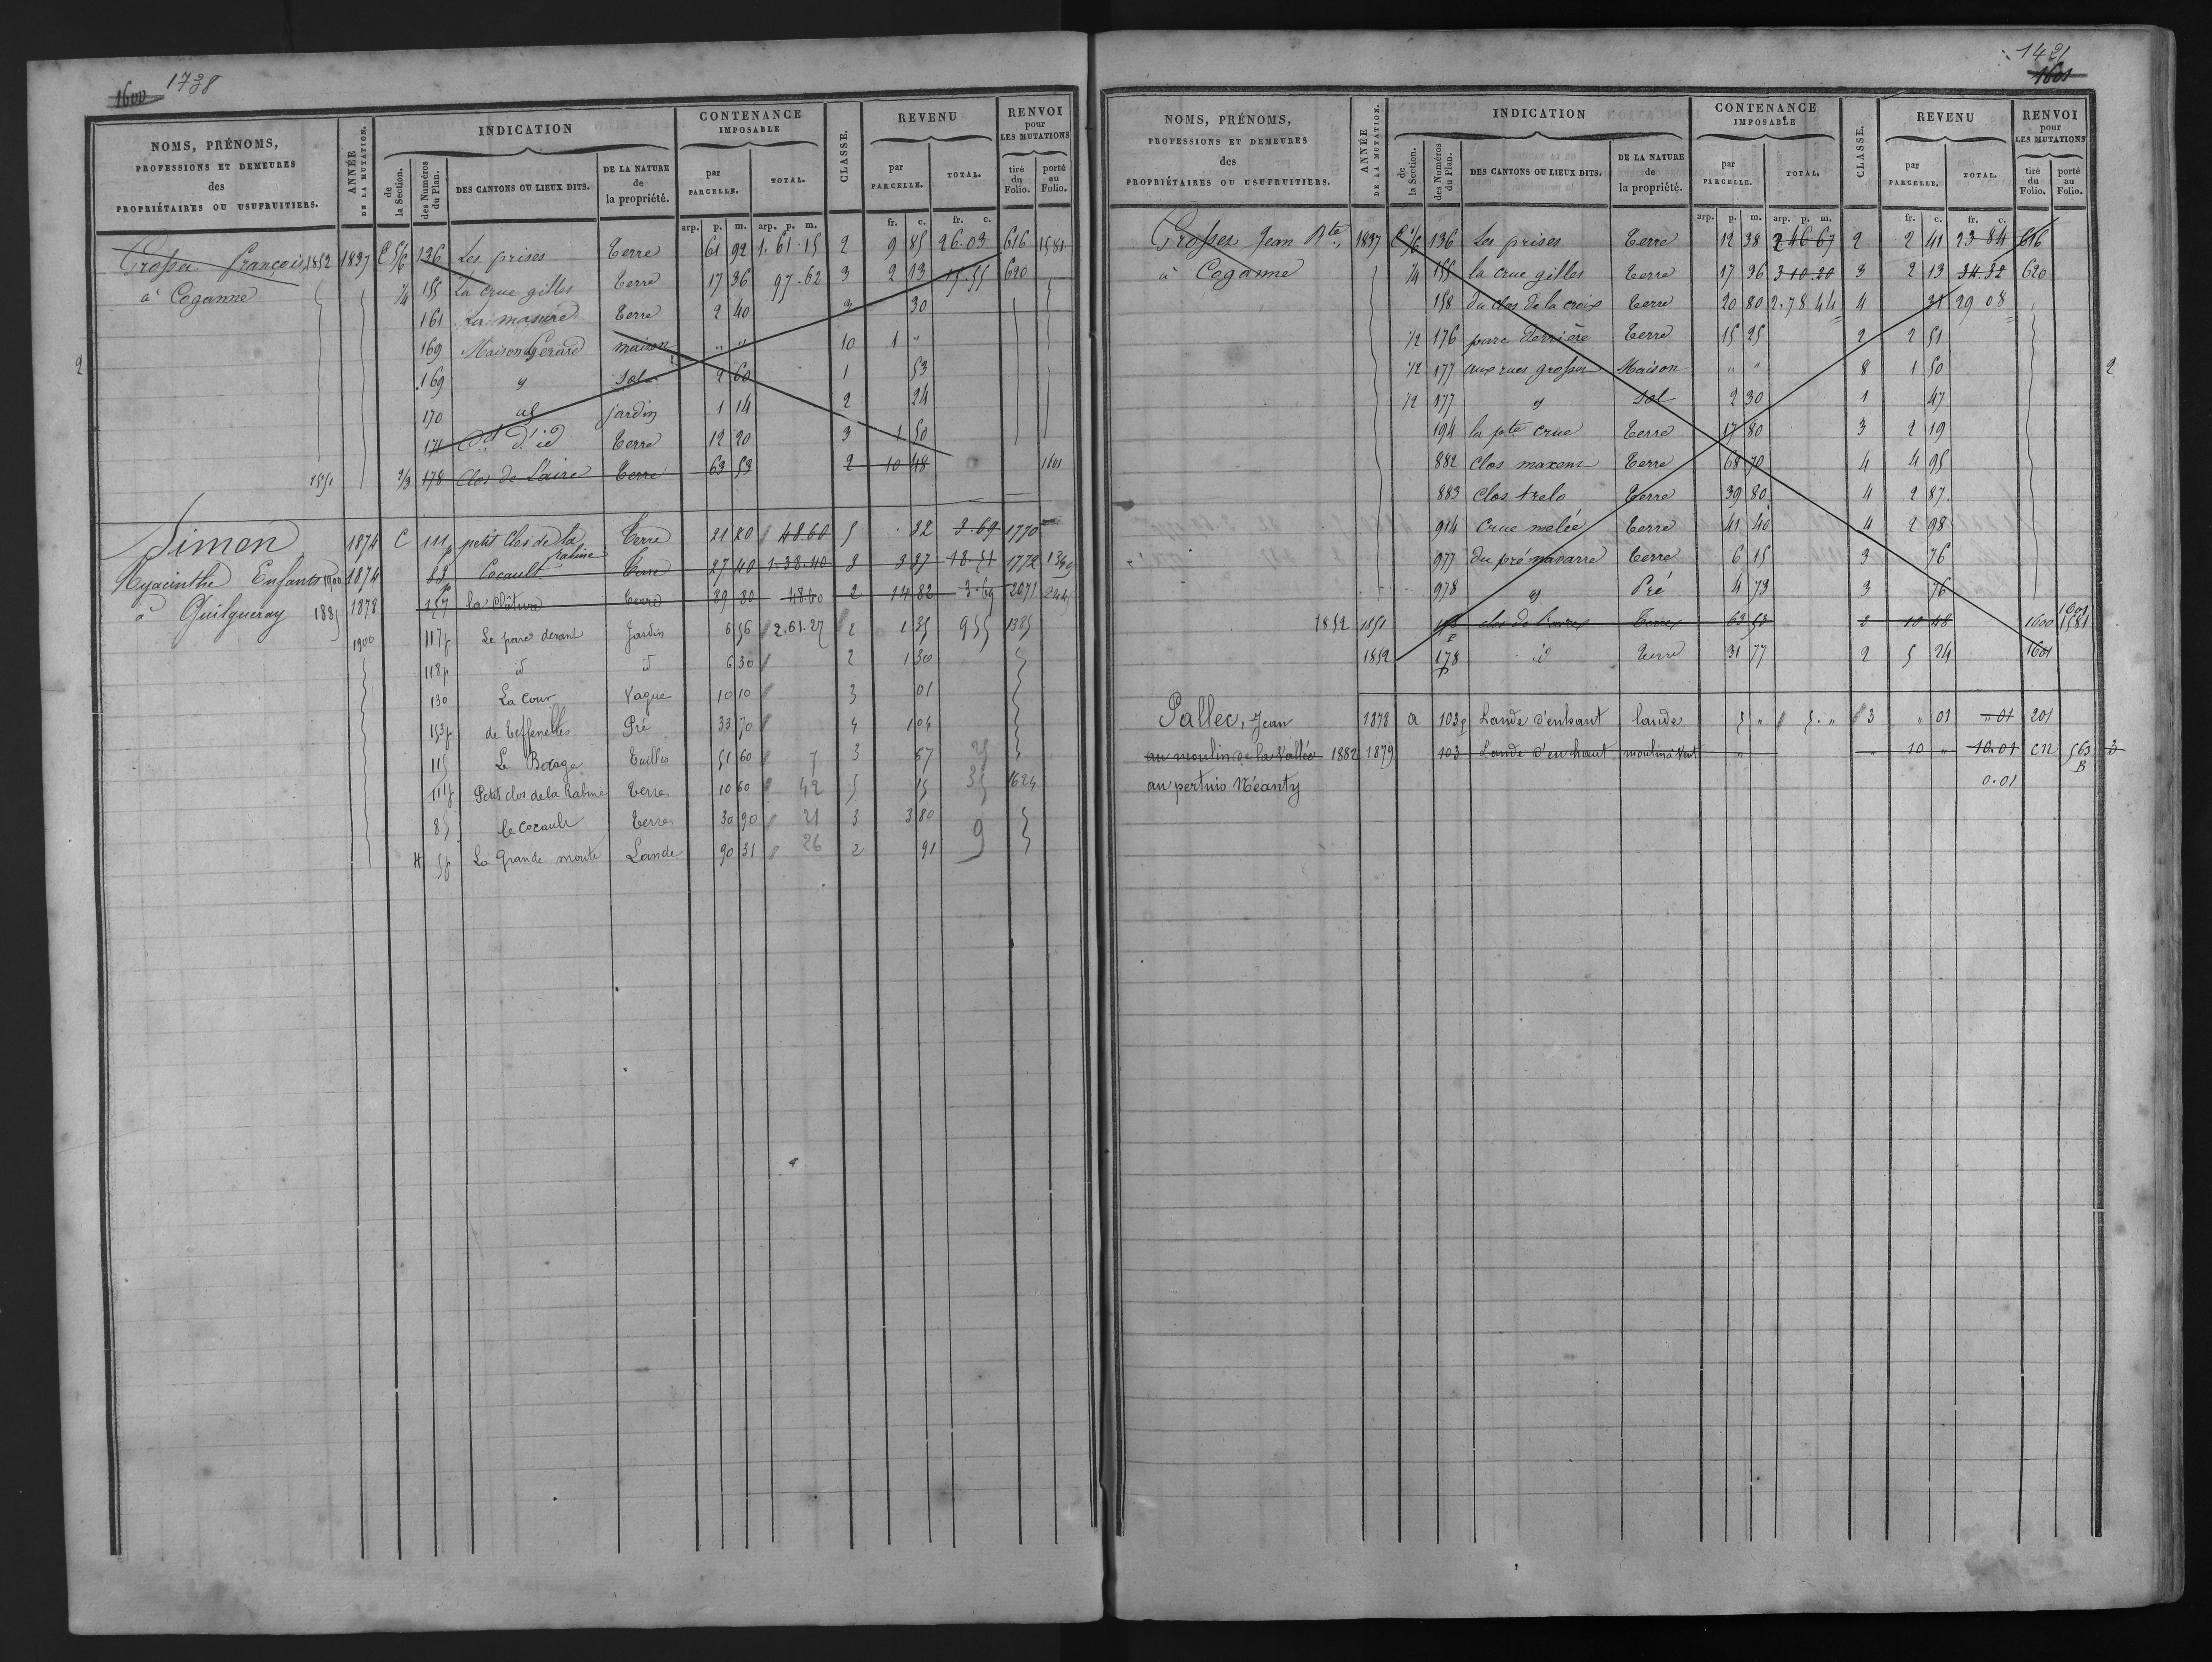 1600 1738
NOMS, PRÉNOMS, PROFESSIONS ET DEMEURES des PROPRIÉTAIRES OU USUFRUITIERS.
ANNÉE DE LA MUTATION.
INDICATION
de la Section.
des Numéros du Plan.
DES CANTONS OU LIEUX DITS.
DE LA NATURE de la propriété.
CONTENANCE IMPOSABLE
par PARCELLE.
TOTAL.
CLASSE.
REVENU
par PARCELLE.
TOTAL.
RENVOI pour LES MUTATIONS
tiré du Folio.
porté au Folio.
arp. p. m. arp. p. m. fr. c. fr. c.
François 1852 1837 C 5/6 136 Les prises Terre 61 92 1.61.15 2 9 85 26.03 616 1581
à Coganne 1/4 155 La crue gilles Terre 17 36 97.62 3 2 13 15.55 620
161 La masure Terre 2 40 30
169 Maison Gerard maison " " 10 1 "
169 Sol 2 60 1 53
170 jardin 1 14 2 24
171 Terre 12 20 3 1 50
1851 2/3 178 Clos de Laire Terre 63 53 2 10 48 1601
Simon 1874 C 111p petit Clos de la rabine Terre 21 20 48.60 5 32 3.69 1770
Hyacinthe Enfants 1900 1874 88 Cocault Terre 27 40 1.38.40 3 3 37 18.51 1772
à Quilqueray 1885 1878 157 la clôture Terre 89 80 48.60 2 14 82 3.69 2071
1900 117p Le parc devant Jardin 6 56 2.61.27 2 1 35 9 55 1385
118p id id 6 30 2 1 30
130 La Cour Vague 10 10 3 01
153p de Teffenelles Pré 33 70 4 1 04
115 Le Bocage Taillis 51 60 7 3 67
111p Petit clos de la Rabine Terres 10 60 42 5 15 35 1624
85 le Cocault Terres 30 90 21 3 3 80
H 5p La Grande moute Lande 90 31 26 2 91 9
2
1421
1601
NOMS, PRÉNOMS, PROFESSIONS ET DEMEURES des PROPRIÉTAIRES OU USUFRUITIERS.
ANNÉE DE LA MUTATION.
INDICATION
de la Section.
des Numéros du Plan.
DES CANTONS OU LIEUX DITS.
DE LA NATURE de la propriété.
CONTENANCE IMPOSABLE
par PARCELLE.
TOTAL.
CLASSE.
REVENU
par PARCELLE.
TOTAL.
RENVOI pour LES MUTATIONS
tiré du Folio.
porté au Folio.
arp. p. m. arp. p. m. fr. c. fr. c.
Jean Bte 1837 C 1/6 136 Les prises Terre 12 38 2 46 67 2 2 41 23 84 616
à Coganne 1/4 155 la crue gilles Terre 17 36 3 10 20 3 2 13 34.32 620
158 du clos de la croix Terre 20 80 2.78 44 4 31 29 08
1/2 176 parc derrière Terre 15 25 2 2 51
1/2 177 aux rues Maison " " 8 1 50
1/2 177 Sol 2 30 1 47
194 la pte crue Terre 17 80 3 2 19
882 Clos maxent Terre 68 70 4 4 95
883 Clos trelo Terre 39 80 4 2 87
914 Crue melée Terre 41 40 4 2 98
977 du pré navarre Terre 6 15 3 76
978 Pré 4 73 3 76
1852 1851 178 clos de Terres 63 53 2 10 48 1600 1601 1581
1852 178p id Terre 31 77 2 5 24 1601
Pallec, Jean 1878 a 103p Lande d'enhaut lande 5 " 5. " 3 " 01 " 01 201
au moulin de la Vallée 1882 1879 103 Lande d'en haut moulin à Vent " " 10 " 10.01 CN 563 B 3
au pertuis Néanty 0.01
2